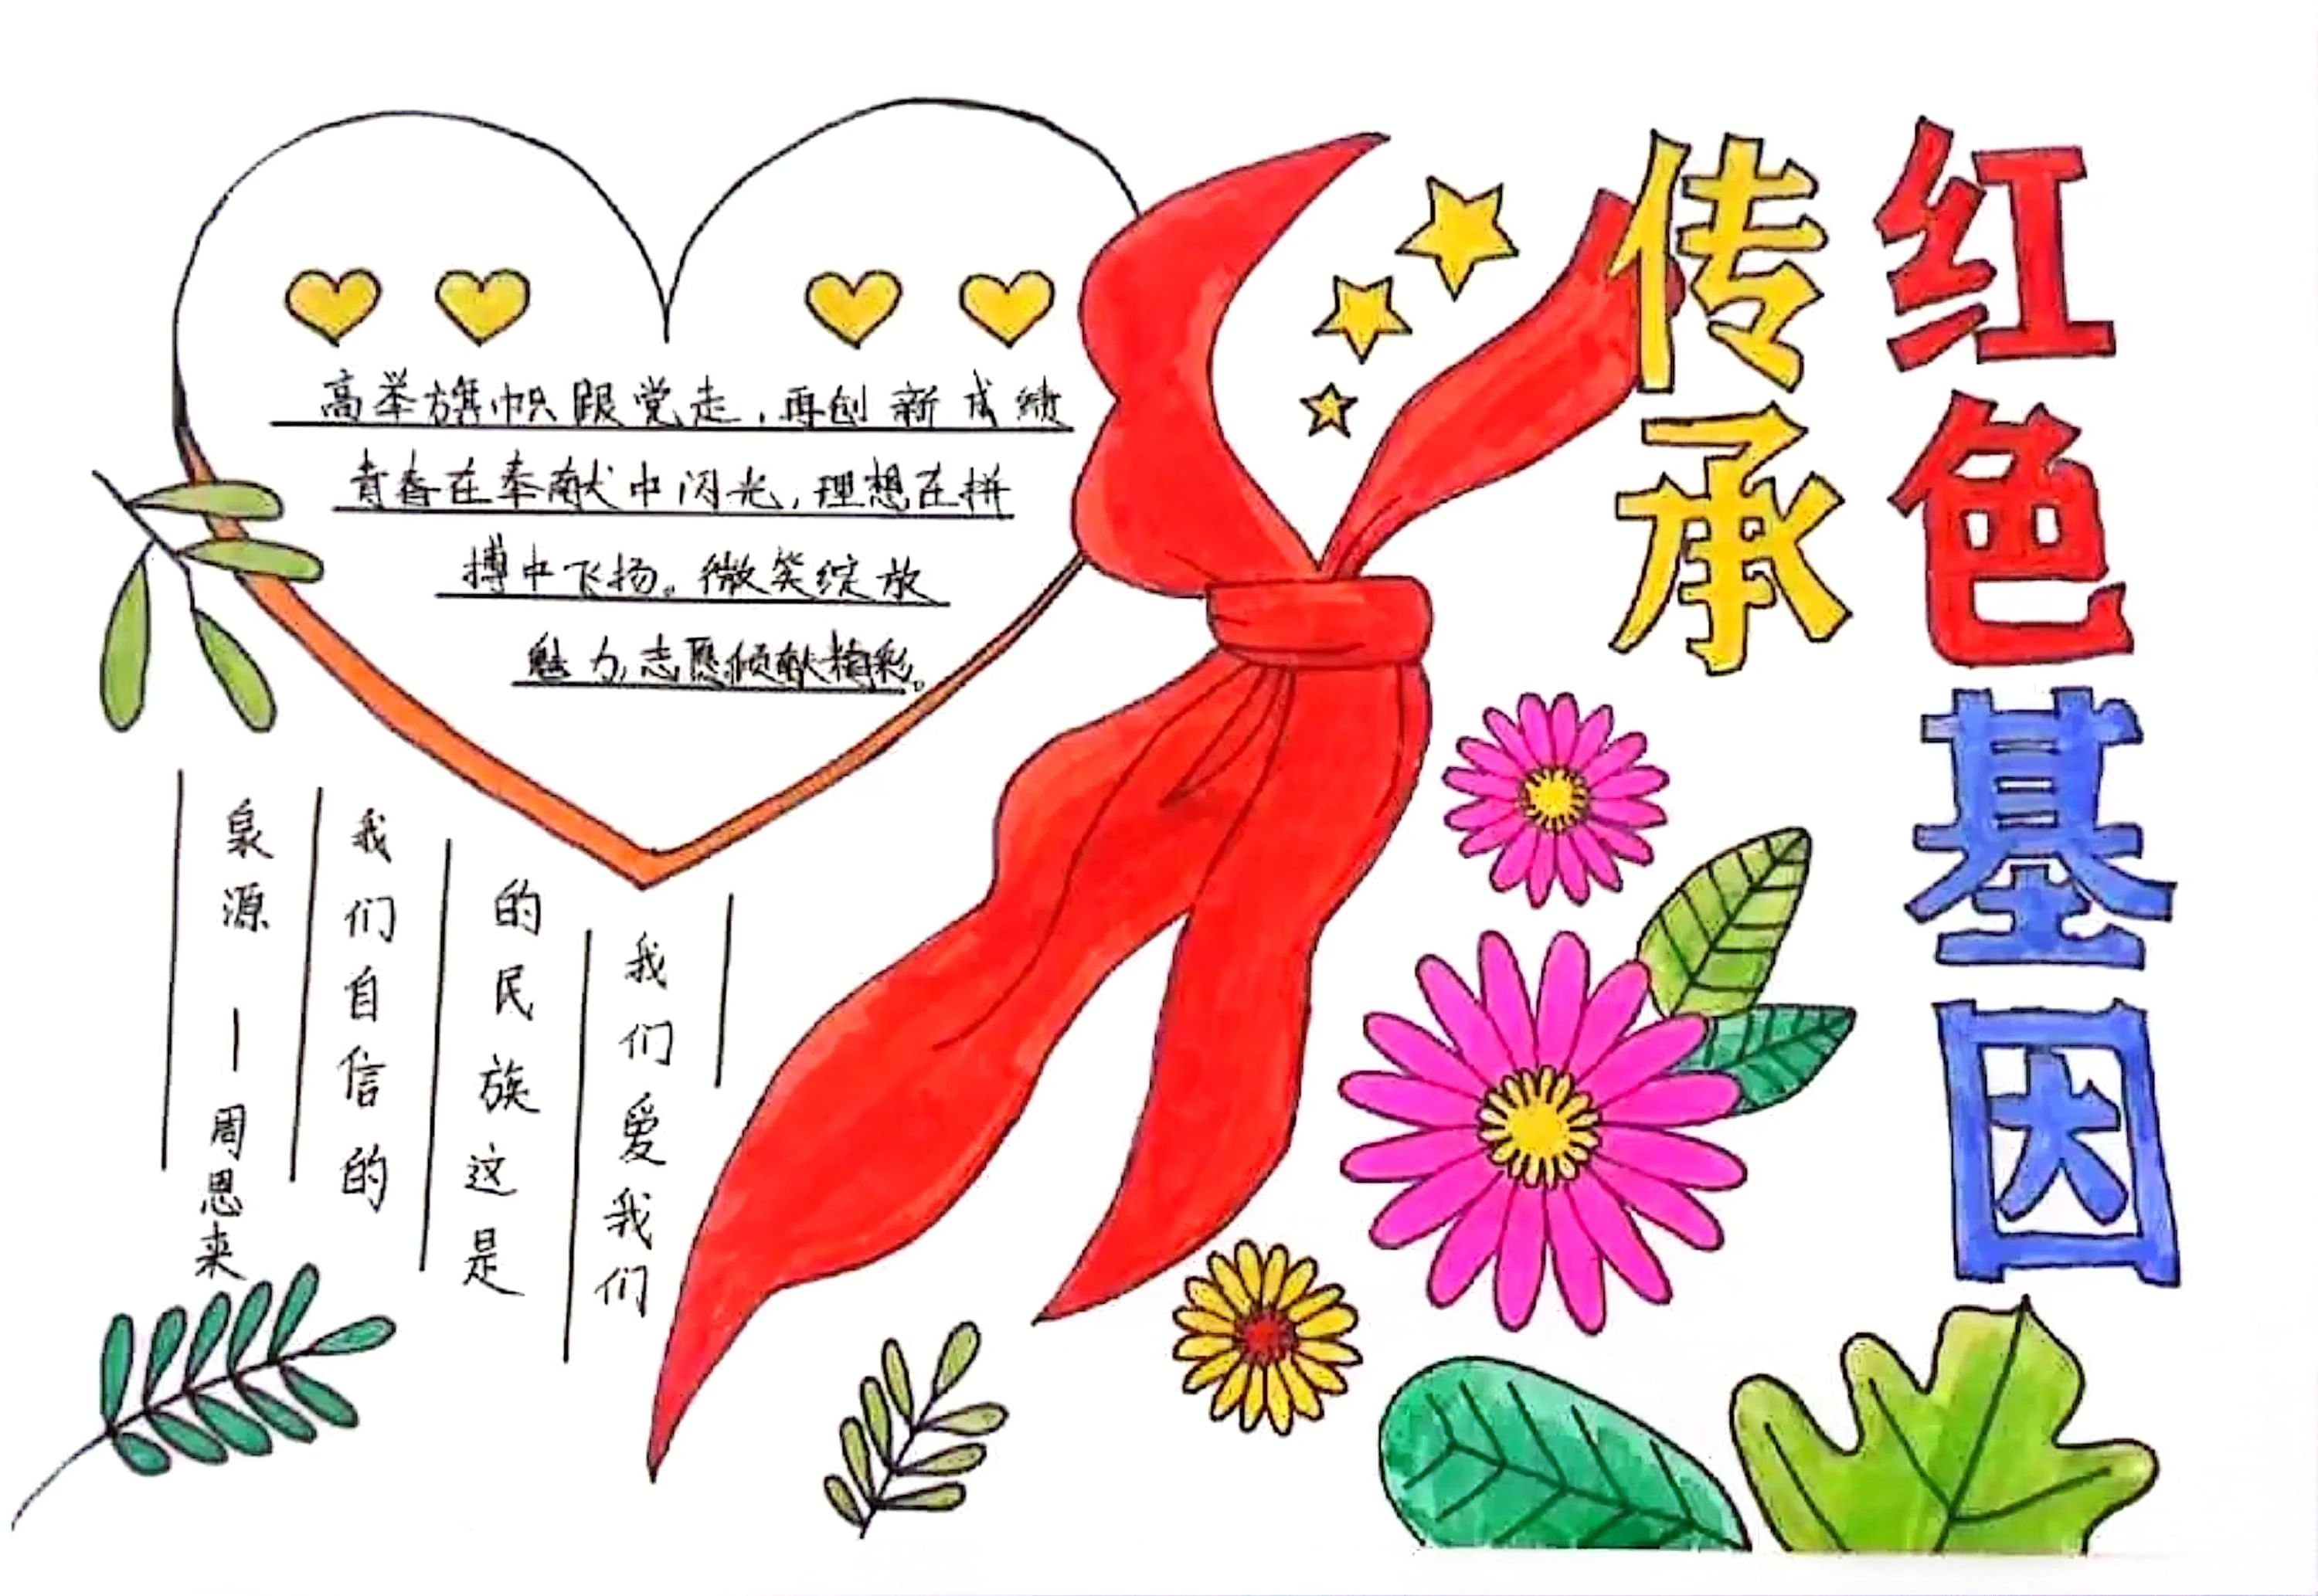 传承
红色基因
高举旗帜跟党走,再创新成绩
青春在奉献中闪光,理想在拼
搏中飞扬。微笑绽放
魅力,志愿倾献精彩。
我们爱我们
的民族这是
我们自信的
泉源—周恩来